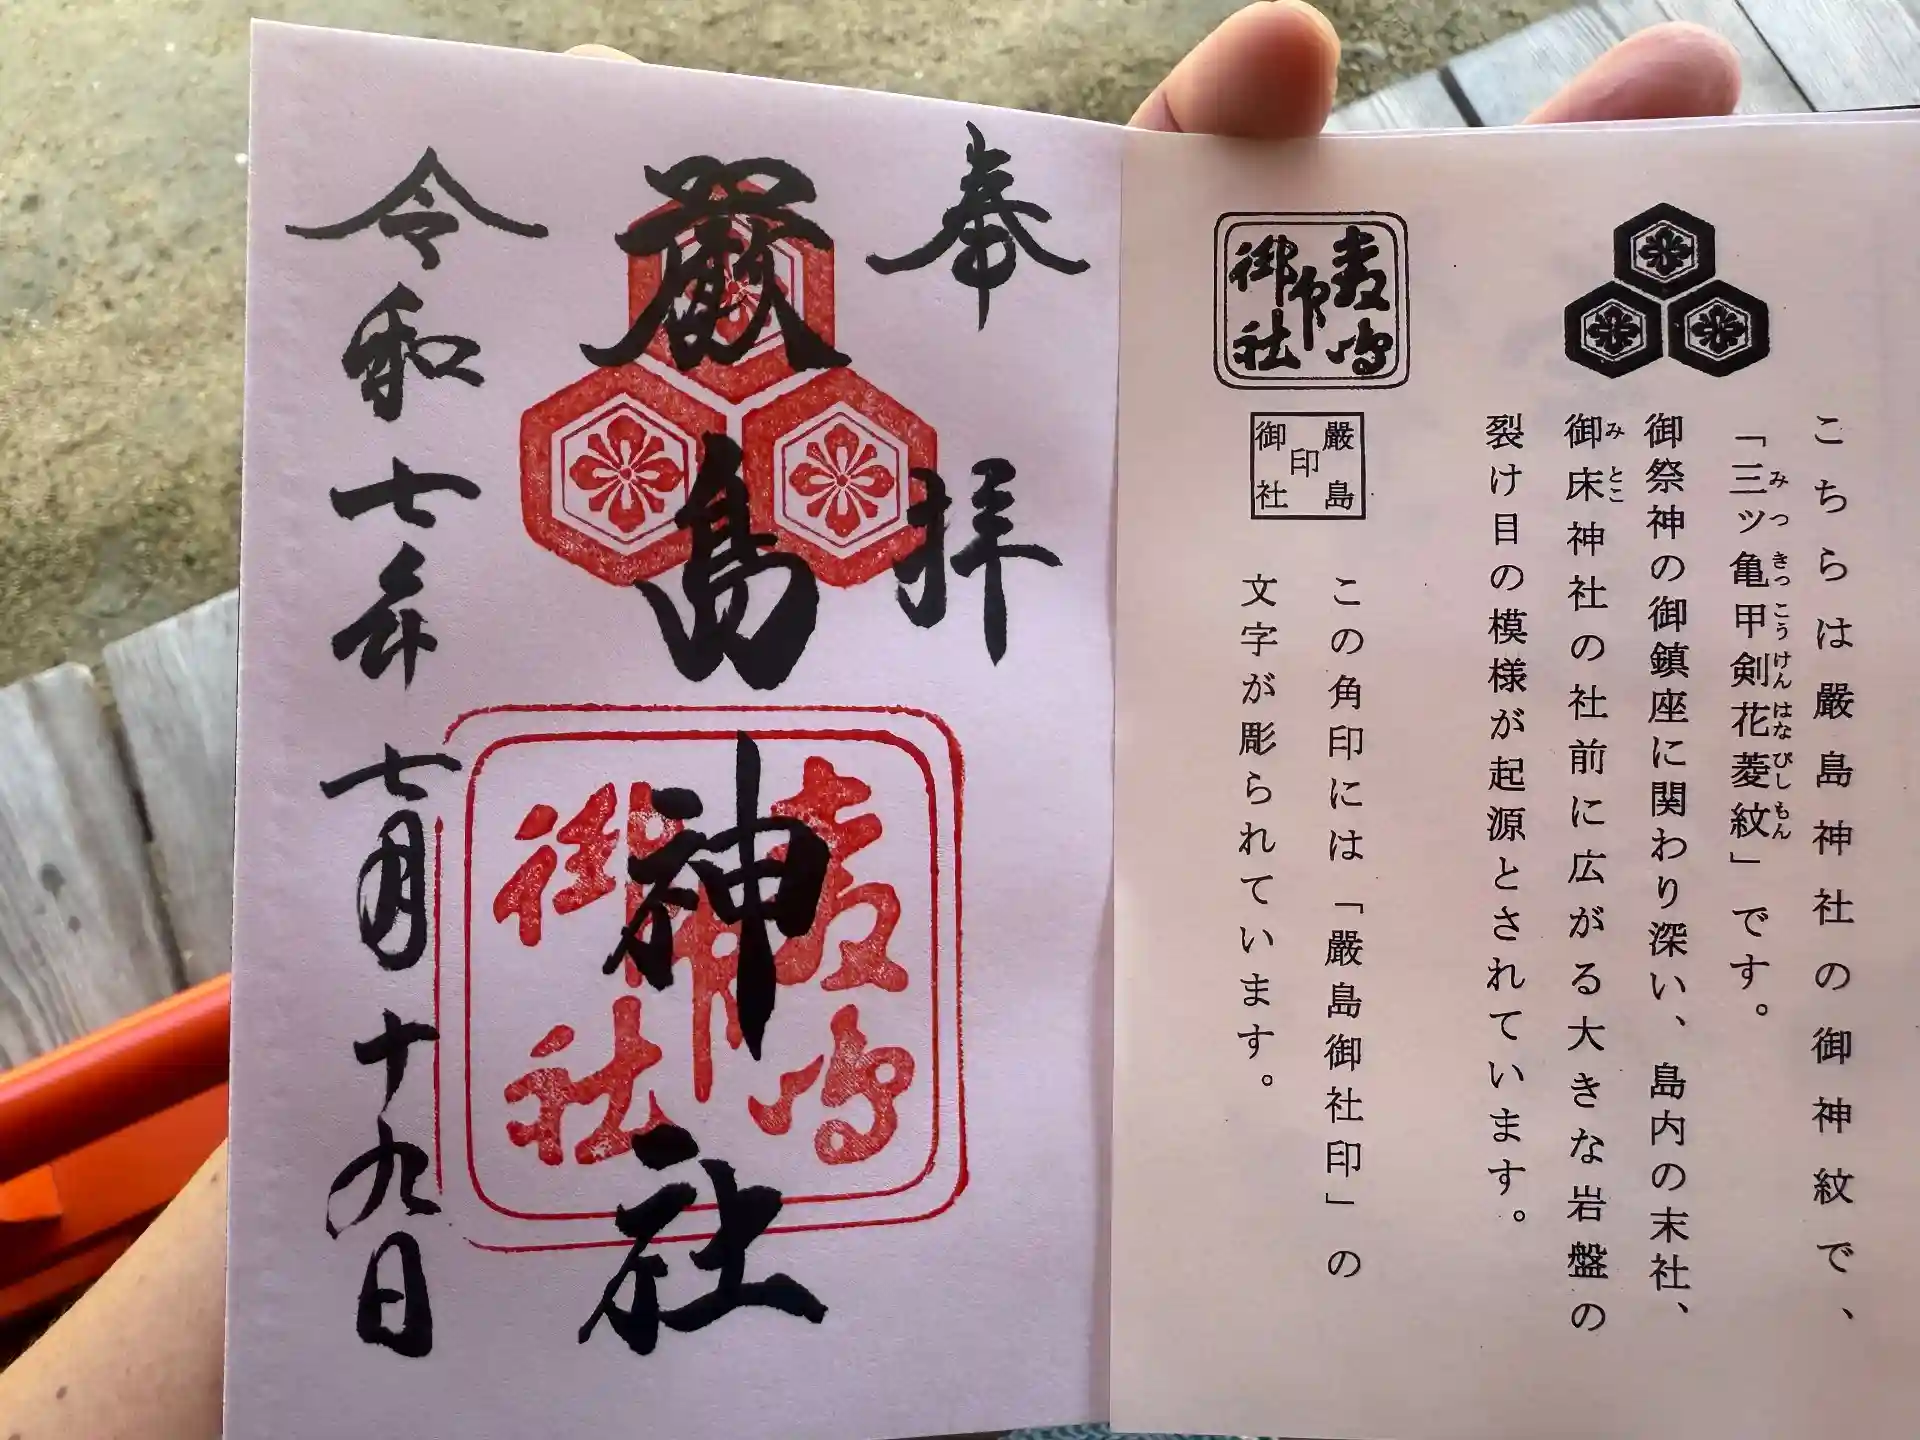 こちらは嚴島神社の御神紋で、
「三ッ亀甲剣花菱紋」です。
みつきっこうけんはなびしもん
御祭神の御鎮座に関わり深い、島内の末社、
御床神社の社前に広がる大きな岩盤の
みとこ
裂け目の模様が起源とされています。
嚴島
印
御社
嚴島
印
御社
この角印には「嚴島御社印」の
文字が彫られています。
奉拝
嚴島神社
嚴島
印
御社
令和七年七月十九日